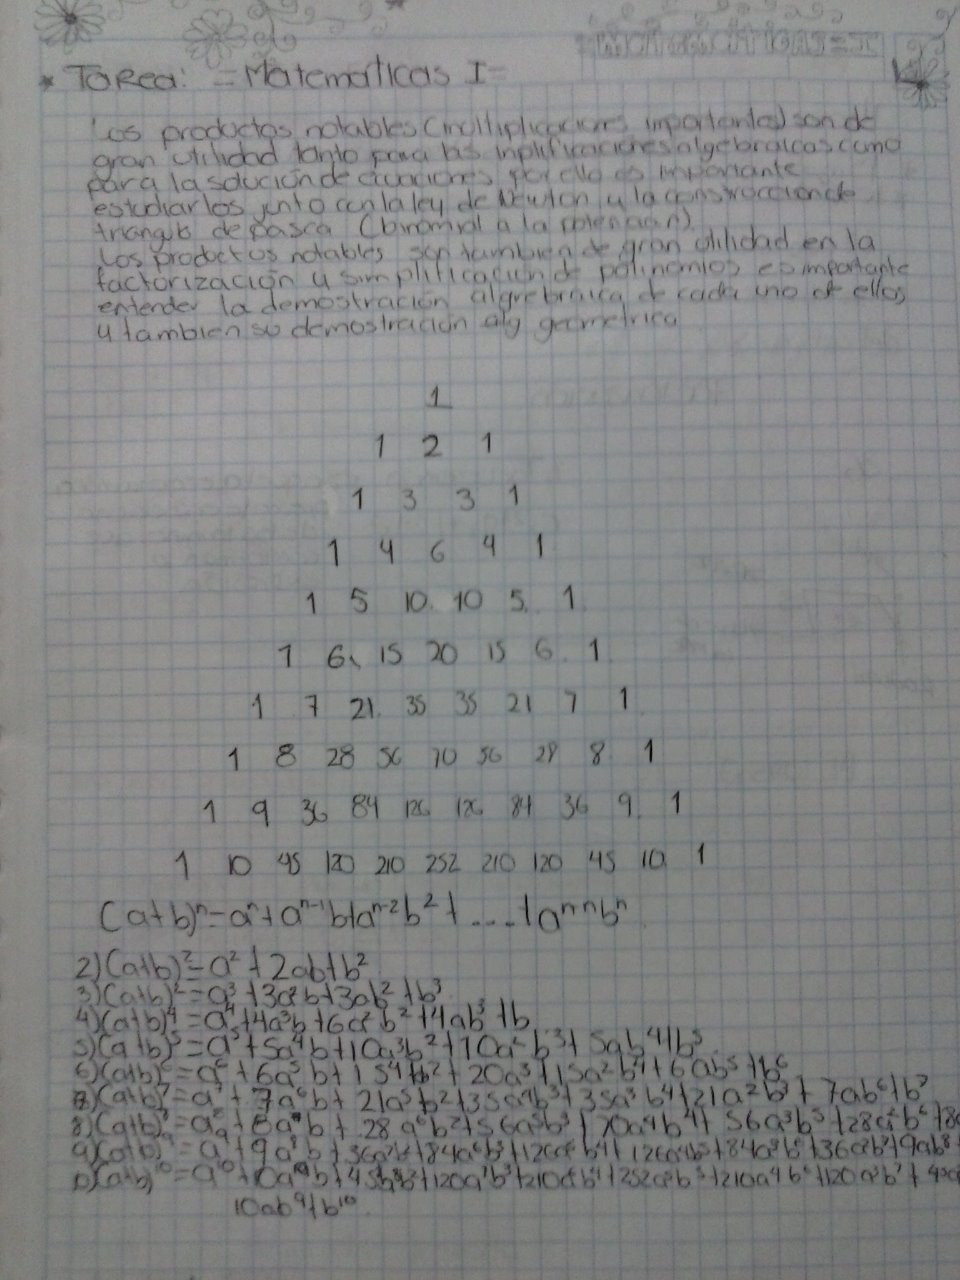 Matematicas = I
* Tarea: = Matematicas I =
Los productos notables (multiplicaciones importantes) son de
gran utilidad tanto para las implificaciones algebraicas como
para la solución de ecuaciones por ello es importante
estudiarlos junto con la ley de Newton y la construccion de
triangulo de pasca (binomial a la potencian)
Los productos notables son tambien de gran utilidad en la
factorización y simplificación de polinomios es importante
entender la demostración algrebraica de cada uno de ellos
y tambien su demostración alg geometrica
1
1 2 1
1 3 3 1
1 4 6 4 1
1 5 10. 10 5. 1
1 6 15 20 15 6. 1
1 7 21. 35 35 21 7 1
1 8 28 56 70 56 28 8 1
1 9 36 84 126 126 84 36 9 1
1 10 45 120 210 252 210 120 45 10 1
(a+b)ⁿ=aⁿ+aⁿ⁻¹b+aⁿ⁻²b²+....+aⁿ⁻ⁿbⁿ
2)(a+b)²=a²+2ab+b²
3)(a+b)²=a³+3a²b+3ab²+b³
4)(a+b)⁴=a⁴+4a³b+6a²b²+4ab³+b
5)(a+b)⁵=a⁵+5a⁴b+10a³b²+10a²b³+5ab⁴+b⁵
6)(a+b)⁶=a⁶+6a⁵b+15⁴b²+20a³+15a²b⁴+6ab⁵+b⁶
7)(a+b)⁷=a⁷+7a⁶b+21a⁵b²+35a⁴b³+35a³b⁴+21a²b⁵+7ab⁶+b⁷
8)(a+b)⁸=a⁸+8a⁷b+28a⁶b²+56a⁵b³+70a⁴b⁴+56a³b⁵+28a²b⁶+8a
9)(a+b)⁹=a⁹+9a⁸b+36a⁷b²+84a⁶b³+126a⁵b⁴+126a⁴b⁵+84a³b⁶+36a²b⁷+9ab⁸+
10)(a+b)¹⁰=a¹⁰+10a⁹b+45a⁸b²+120a⁷b³+210a⁶b⁴+252a⁵b⁵+210a⁴b⁶+120a³b⁷+45a
10ab⁹+b¹⁰